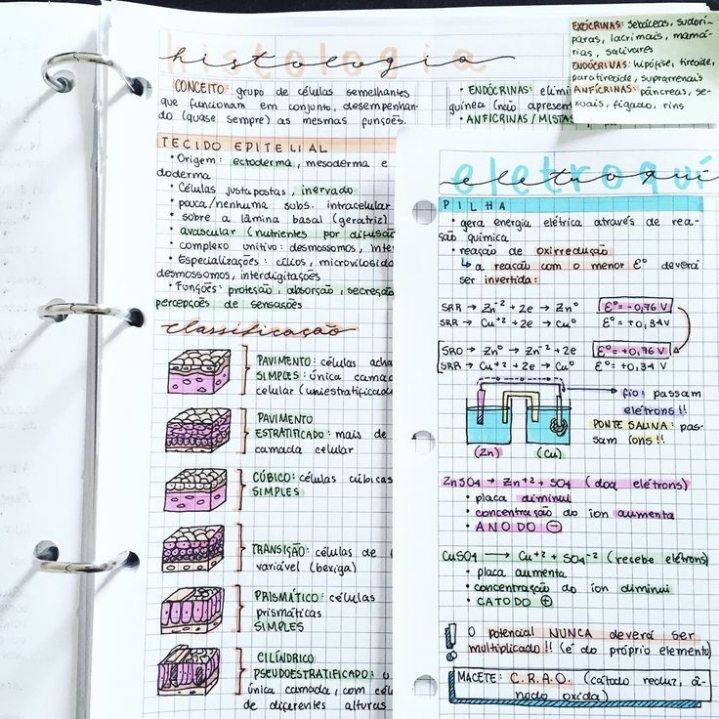 histologia
CONCEITO: grupo de células semelhantes
que funcionam em conjunto, desempenhan-
do (quase sempre) as mesmas funções.
TECIDO EPITELIAL
• Origem: ectoderma, mesoderma e
doderma
• Células justapostas, inervado
• pouca/nenhuma subs. intracelular
• sobre a lâmina basal (geratriz)
• avascular (nutrientes por difusão
• complexo unitivo: desmossomos, inte
• Especializações: cílios, microvilosida
desmossomos, interdigitações
• Funções: proteção, absorção, secreção
percepções de sensações
classificação
PAVIMENTO: células acha
SIMPLES: única camad
celular (uniestratificado
PAVIMENTO
ESTRATIFICADO: mais de
camada celular
CÚBICO: células cúbicas
SIMPLES
TRANSIÇÃO: células de
variável (bexiga)
PRISMÁTICO: células
prismáticas
SIMPLES
CILÍNDRICO
PSEUDOESTRATIFICADO: u
única camada, com cél
de diferentes alturas
• ENDÓCRINAS: elimi
guínea (não apresent
• ANFÍCRINAS/MISTAS
EXÓCRINAS: sebáceas, sudorí-
paras, lacrimais, mamá-
rias, salivares
ENDÓCRINAS: hipófise, tireoide,
paratireoide, suprarrenais
ANFÍCRINAS: pâncreas, se-
xuais, fígado, rins
eletroquí
PILHA
• gera energia elétrica através de rea-
ção química
• reação de oxirredução
↳ a reação com o menor E° deverá
ser invertida:
SRR → Zn⁻² + 2e → Zn° E° = -0,76 V
SRR → Cu⁺² + 2e → Cu° E° = +0,34V
SRO → Zn° → Zn⁻² + 2e E° = +0,76 V
SRR → Cu⁺² + 2e → Cu° E° = +0,34 V
fio: passam
elétrons!!
PONTE SALINA: pas-
sam íons!!
(Zn) (Cu)
ZnSO4 → Zn⁺² + SO4 (doa elétrons)
• placa diminui
• concentração do íon aumenta
• ANODO ⊖
CuSO4 → Cu⁺² + SO4⁻² (recebe elétrons)
• placa aumenta
• concentração do íon diminui
• CATODO ⊕
! O potencial NUNCA deverá ser
multiplicado!! (é do próprio elemento)
MACETE: C.R.A.O. (catodo reduz, â-
nodo oxida)